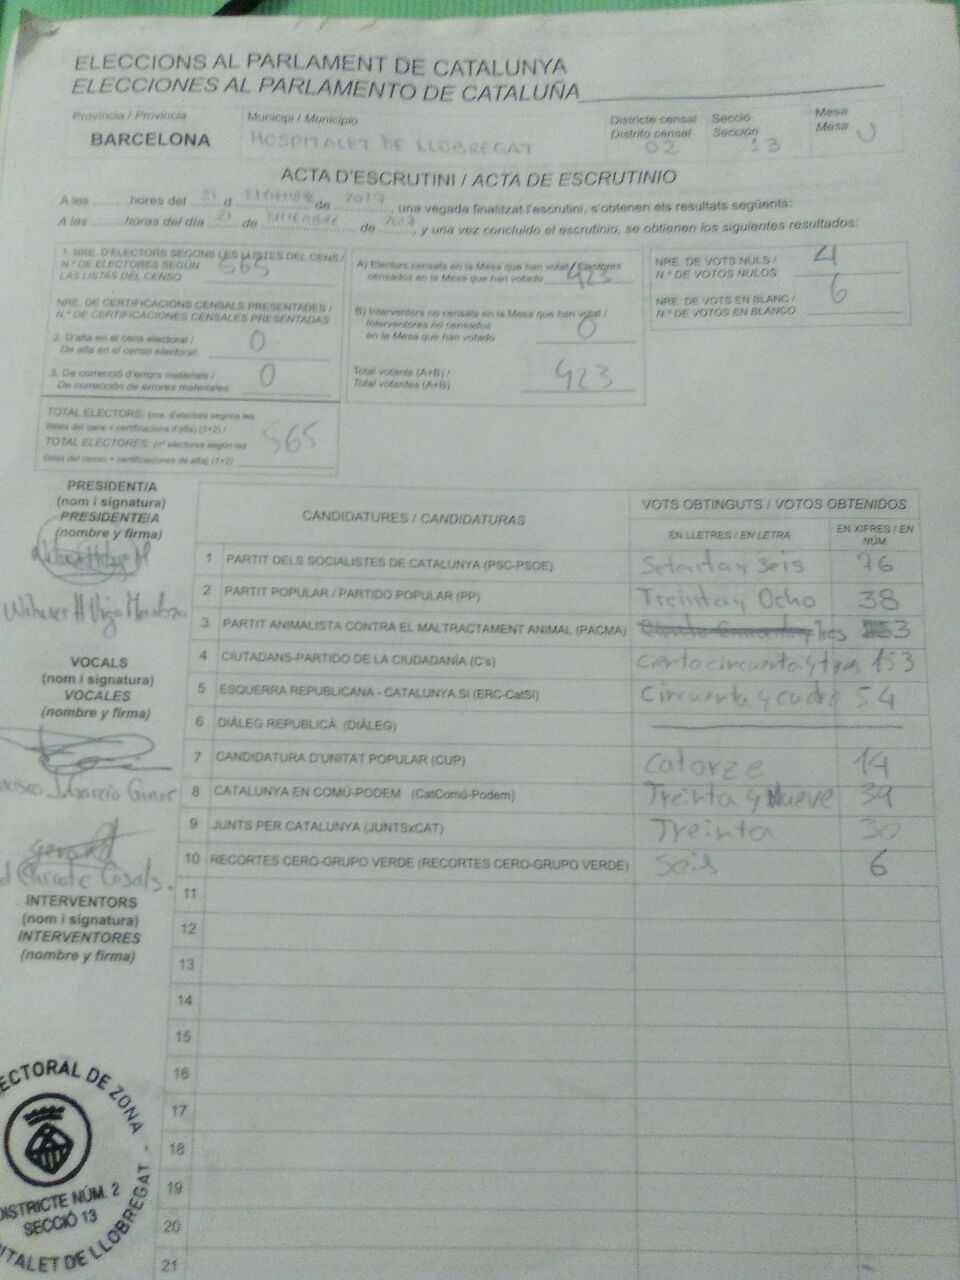 ELECCIONS AL PARLAMENT DE CATALUNYA
ELECCIONES AL PARLAMENTO DE CATALUÑA
Província / Provincia
BARCELONA
Municipi / Municipio
HOSPITALET DE LLOBREGAT
Districte censal
Distrito censal
02
Secció
Sección
13
Mesa
Mesa
U
ACTA D'ESCRUTINI / ACTA DE ESCRUTINIO
A les ......... hores del 21 d DICIEMBRE de 2017, una vegada finalitzat l'escrutini, s'obtenen els resultats següents:
A las ......... horas del día 21 de DICIEMBRE de 2017, y una vez concluido el escrutinio, se obtienen los siguientes resultados:
1. NRE. D'ELECTORS SEGONS LES LLISTES DEL CENS /
N.º DE ELECTORES SEGÚN
LAS LISTAS DEL CENSO
565
NRE. DE CERTIFICACIONS CENSALS PRESENTADES /
N.º DE CERTIFICACIONES CENSALES PRESENTADAS
2. D'alta en el cens electoral /
De alta en el censo electoral:
0
3. De correcció d'errors materials /
De corrección de errores materiales:
0
TOTAL ELECTORS: (nre. d'electors segons les
llistes del cens + certificacions d'alta) (1+2) /
TOTAL ELECTORES: (nº electores según las
listas del censo + certificaciones de alta) (1+2)
565
A) Electors censats en la Mesa que han votat / Electores
censados en la Mesa que han votado
423
B) Interventors no censats en la Mesa que han votat /
Interventores no censados
en la Mesa que han votado
0
Total votants (A+B) /
Total votantes (A+B)
423
NRE. DE VOTS NULS /
N.º DE VOTOS NULOS
4
NRE. DE VOTS EN BLANC /
N.º DE VOTOS EN BLANCO
6
PRESIDENT/A
(nom i signatura)
PRESIDENTE/A
(nombre y firma)
VOCALS
(nom i signatura)
VOCALES
(nombre y firma)
García Giner
Gerard
Chicote Casals.
INTERVENTORS
(nom i signatura)
INTERVENTORES
(nombre y firma)
CANDIDATURES / CANDIDATURAS
VOTS OBTINGUTS / VOTOS OBTENIDOS
EN LLETRES / EN LETRA
EN XIFRES / EN
NÚM.
1 PARTIT DELS SOCIALISTES DE CATALUNYA (PSC-PSOE) Setenta y seis 76
2 PARTIT POPULAR / PARTIDO POPULAR (PP) Treinta y Ocho 38
3 PARTIT ANIMALISTA CONTRA EL MALTRACTAMENT ANIMAL (PACMA) Tres 3
4 CIUTADANS-PARTIDO DE LA CIUDADANÍA (C's) ciento cincuenta y tres 153
5 ESQUERRA REPUBLICANA - CATALUNYA SÍ (ERC-CatSí) Cincuenta y cuatro 54
6 DIÀLEG REPUBLICÀ (DIÀLEG)
7 CANDIDATURA D'UNITAT POPULAR (CUP) Catorze 14
8 CATALUNYA EN COMÚ-PODEM (CatComú-Podem) Treinta y Nueve 39
9 JUNTS PER CATALUNYA (JUNTSxCAT) Treinta 30
10 RECORTES CERO-GRUPO VERDE (RECORTES CERO-GRUPO VERDE) Seis 6
11
12
13
14
15
16
17
18
19
20
21
ECTORAL DE ZONA -
DISTRICTE NÚM. 2
SECCIÓ 13
PITALET DE LLOBREGAT